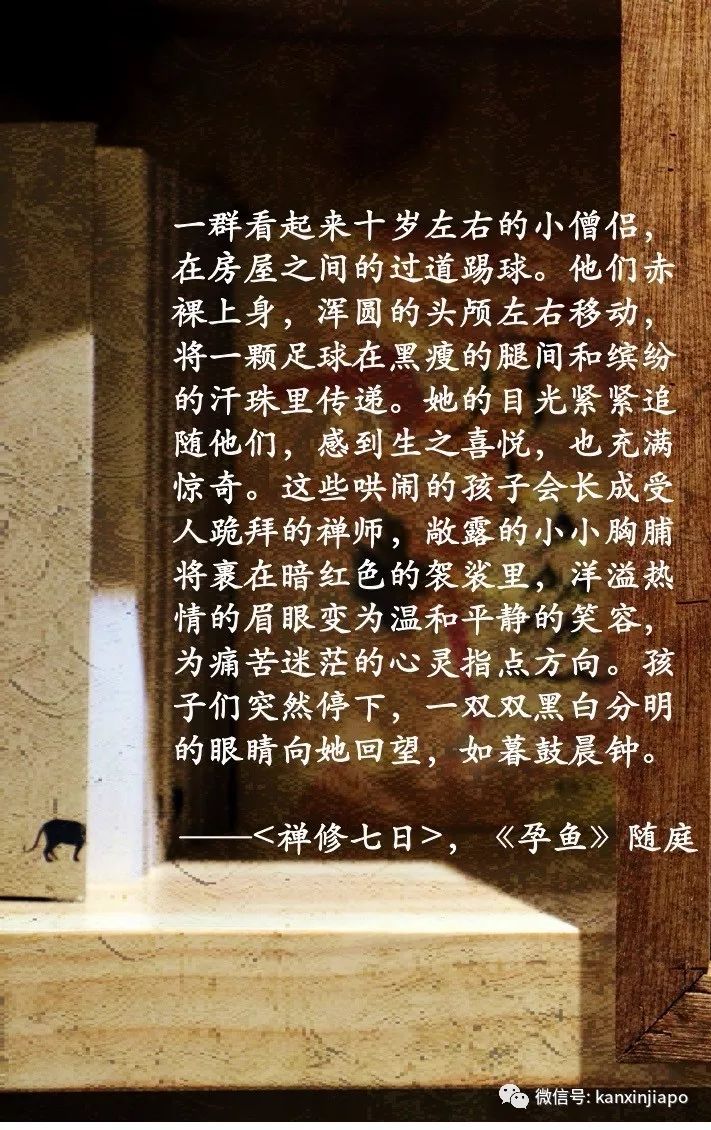 一群看起来十岁左右的小僧侣，
在房屋之间的过道踢球。他们赤
裸上身，浑圆的头颅左右移动，
将一颗足球在黑瘦的腿间和缤纷
的汗珠里传递。她的目光紧紧追
随他们，感到生之喜悦，也充满
惊奇。这些哄闹的孩子会长成受
人跪拜的禅师，敞露的小小胸脯
将裹在暗红色的袈裟里，洋溢热
情的眉眼变为温和平静的笑容，
为痛苦迷茫的心灵指点方向。孩
子们突然停下，一双双黑白分明
的眼睛向她回望，如暮鼓晨钟。
——<禅修七日>，《孕鱼》随庭
微信号: kanxinjiapo